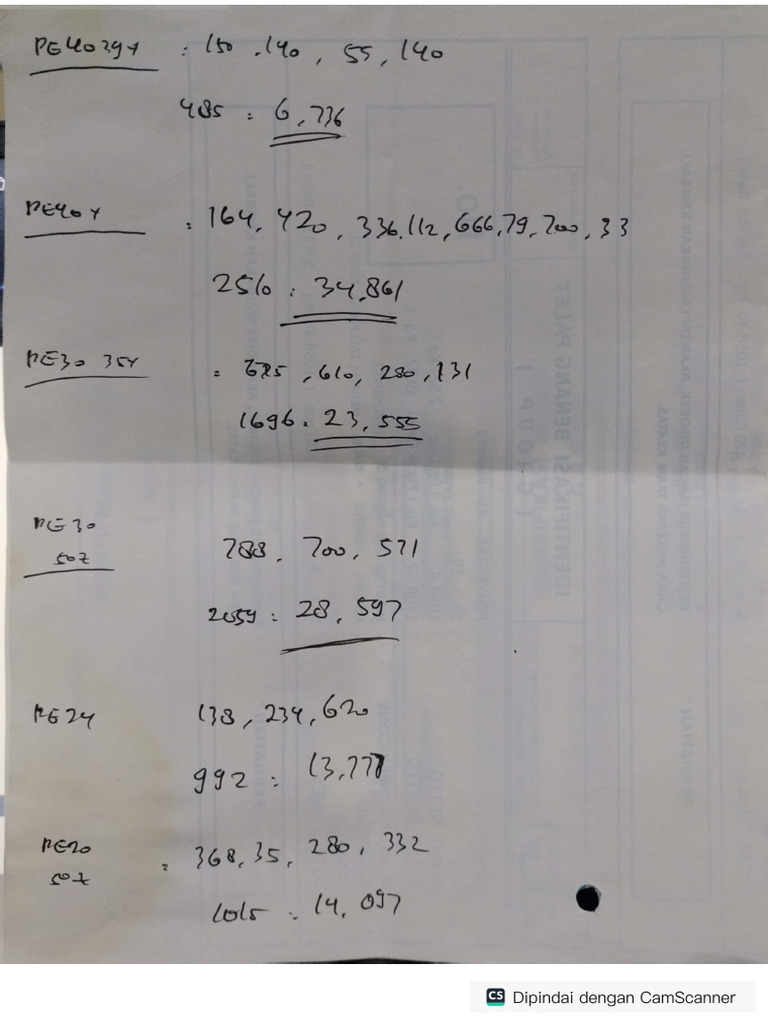 PE40 39Y : 150, 140, 55, 140
485 : 6,736
PE40Y : 164, 420, 336, 112, 666, 79, 700, 33
2510 : 34,861
PE30 35Y = 675, 610, 280, 131
1696 : 23,555
PE30
50Z 788, 700, 571
2059 : 28,597
PE24 138, 234, 620
992 : 13,777
PE20
50Z = 368, 35, 280, 332
1015 : 14,097
CS Dipindai dengan CamScanner